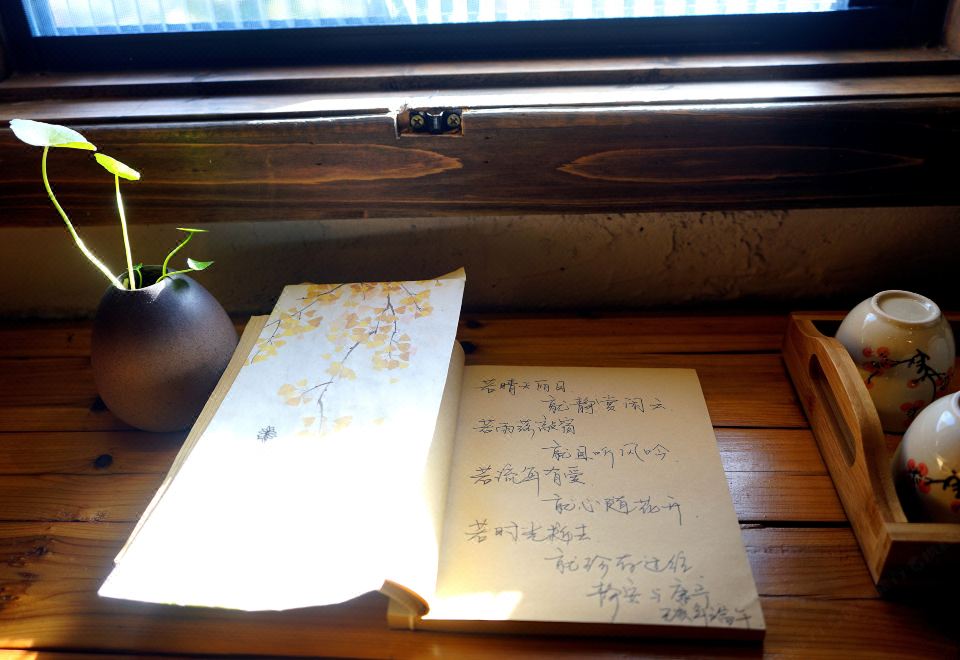 若晴天丽日
就静赏闲云
若雨落敲窗
就且听风吟
若流年有爱
就心随花开
若时光释去
就珍存过往
静安与唐